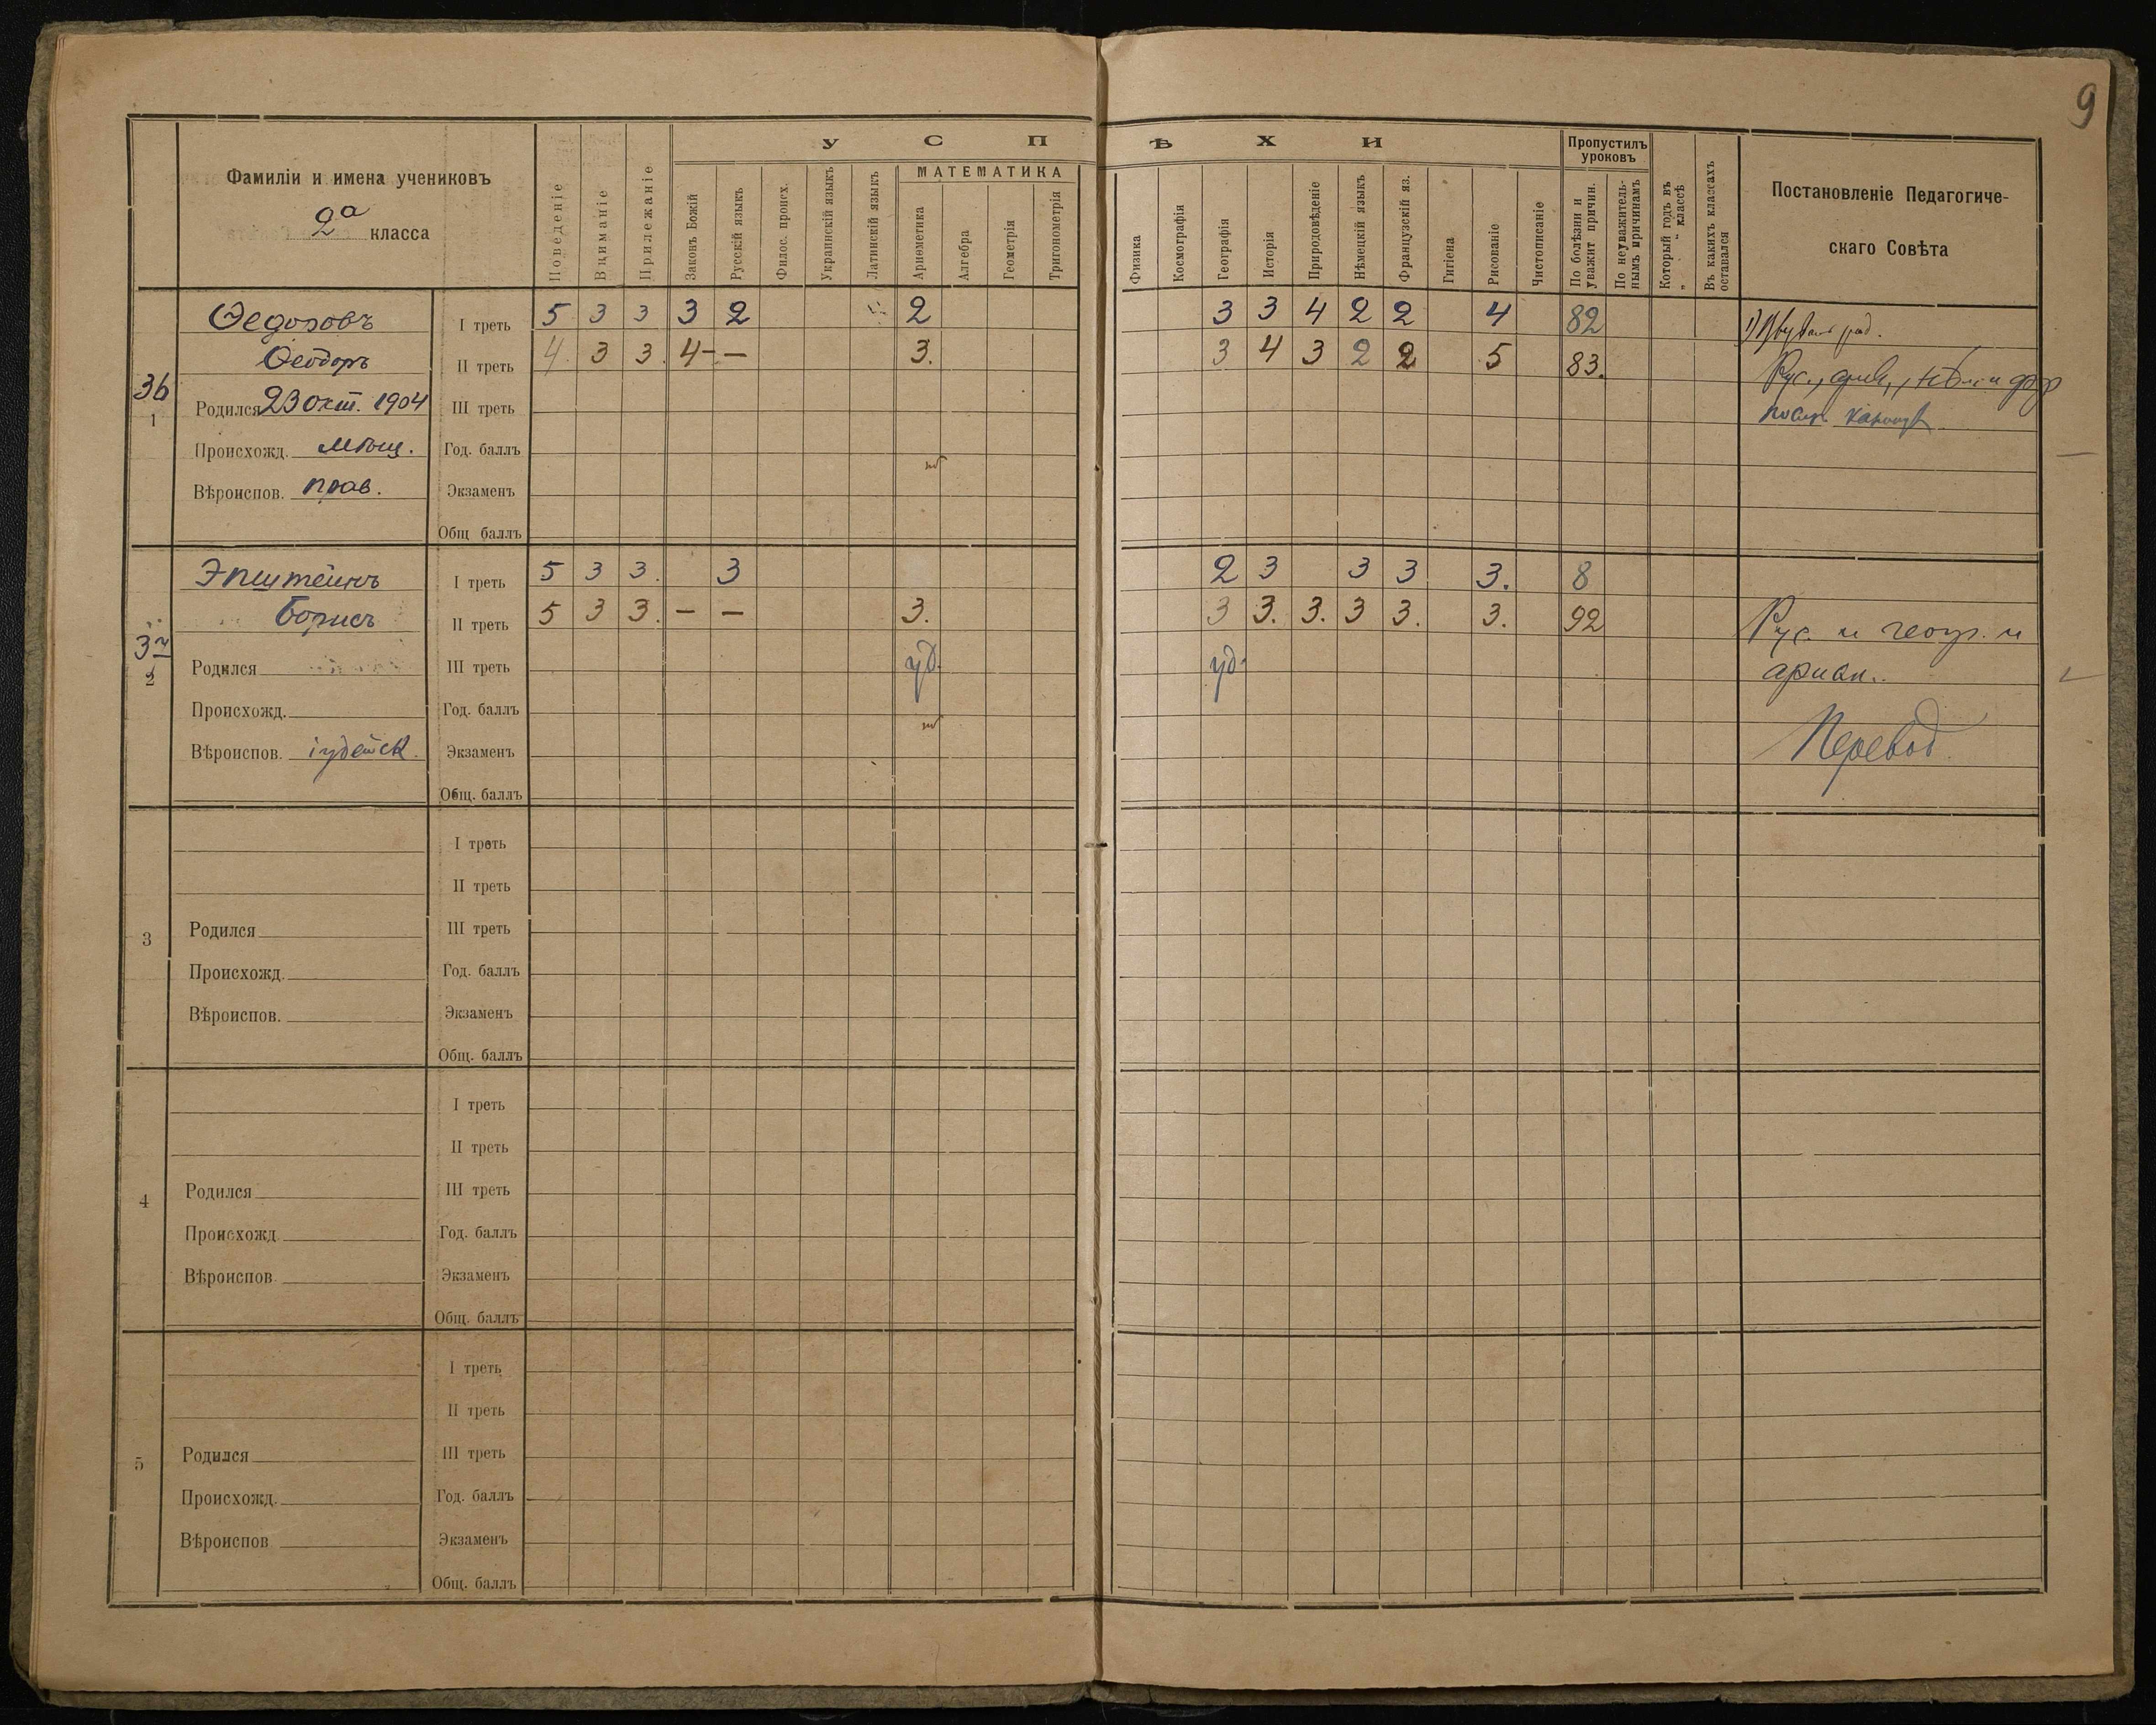 9
УСПѢХИ
Фамиліи и имена учениковъ
2а класса
Поведеніе
Вниманіе
Прилежаніе
Законъ Божій
Русскій языкъ
Филос. происх.
Украинскій языкъ
Латинскій языкъ
МАТЕМАТИКА
Ариѳметика
Алгебра
Геометрія
Тригонометрія
Физика
Космографія
Географія
Исторія
Природовѣденіе
Нѣмецкій языкъ
Французскій яз.
Гигіена
Рисованіе
Чистописаніе
Пропустилъ уроковъ
По болѣзни и уважит причин.
По неуважитель-нымъ причинамъ
Который годъ въ „ “ классѣ
Въ какихъ классахъ оставался
Постановленіе Педагогиче-
скаго Совѣта
Ѳедоровъ I треть 5 3 3 3 2 2 3 3 4 2 2 4 82
Ѳеодоръ II треть 4 3 3. 4- — 3. 3 4 3 2 2 5 83.
36
1
Родился 23 окт. 1904 III треть
Происхожд. мѣщ. Год. баллъ
Вѣроиспов. прав. Экзаменъ
Общ баллъ
Эпштейнъ I треть 5 3 3. 3 2 3 3 3 3. 8
Борисъ II треть 5 3 3. — — 3. 3 3. 3. 3 3. 3. 92 Рус. и геогр. и
37
2
Родился III треть уд. уд. ариѳм.
Происхожд. Год. баллъ
Перевод.
Вѣроиспов. іудейск. Экзаменъ
Общ. баллъ
I треть
II треть
3 Родился III треть
Происхожд. Год. баллъ
Вѣроиспов. Экзаменъ
Общ. баллъ
I треть
II треть
4 Родился III треть
Происхожд. Год. баллъ
Вѣроиспов. Экзаменъ
Общ. баллъ
I треть
II треть
5 Родился III треть
Происхожд. Год. баллъ
Вѣроиспов Экзаменъ
Общ. баллъ